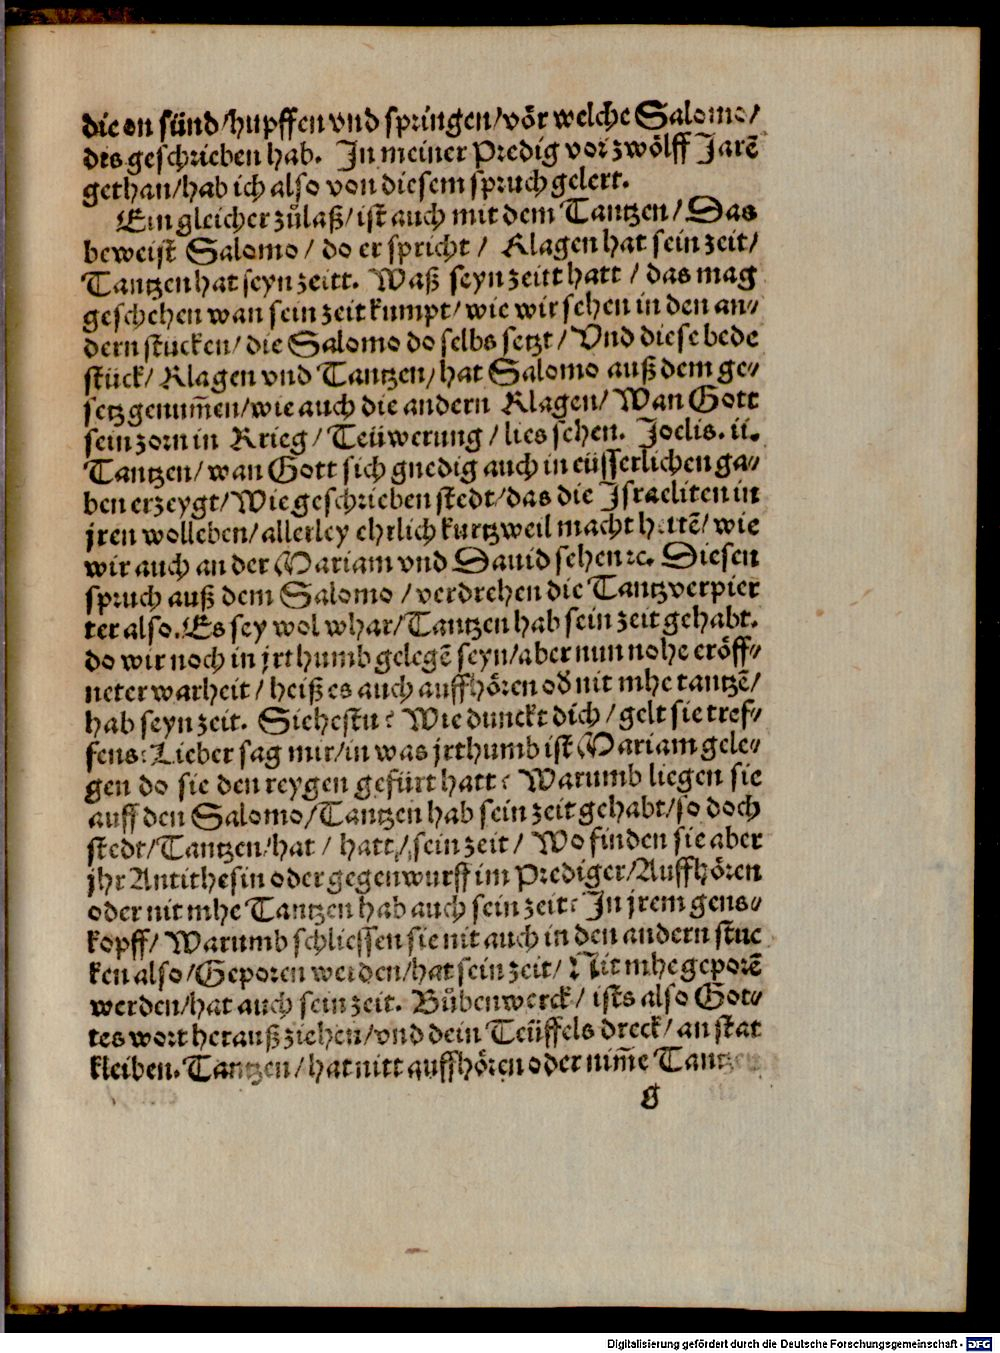 die on sünd/hupffen vnd springen/vör welche Salomo/
des geschrieben hab. In meiner Predig vor zwölff Jarē
gethan/hab ich also von diesem spruch gelert.
Ein gleicher zůlaß/ist auch mit dem Tantzen/Das
beweist Salomo/ do er spricht/ Klagen hat sein zeit/
Tantzen hat seyn zeitt. Waß seyn zeitt hatt/ das mag
geschehen wan sein zeit kumpt/wie wir sehen in den an⸗
dern stucken/die Salomo do selbs setzt/Vnd diese bede
stück/Klagen vnd Tantzen/hat Salomo auß dem ge⸗
setz genum̃en/wie auch die andern Klagen/Wan Gott
sein zorn in Krieg/Teüwerung/lies sehen. Joelis. ii.
Tantzen/wan Gott sich gnedig auch in eüsserlichen ga⸗
ben erzeygt/Wie geschrieben stedt/das die Israeliten in
jren wolleben/allerley ehrlich kurtzweil macht hettē/wie
wir auch an der Mariam vnd Dauid sehen ꝛc. Diesen
spruch auß dem Salomo/verdrehen die Tantzverpier
ter also. Es sey wol whar/Tantzen hab sein zeit gehabt.
do wir noch in jrthumb gelegē seyn/aber nun nohe eröff⸗
neter warheit/heiß es auch auffhören oď nit mhe tantzē/
hab seyn zeit. Siehestu? Wie dunckt dich/gelt sie tref⸗
fens: Lieber sag mir/in was jrthumb ist Mariam gele⸗
gen do sie den reygen gefürt hatt? Warumb liegen sie
auff den Salomo/Tantzen hab sein zeit gehabt/so doch
stedt/Tantzen/hat/ hatt/sein zeit/ Wo finden sie aber
jhr Antithesin oder gegenwurff im Prediger/Auffhören
oder nit mhe Tantzen hab auch sein zeit? In jrem gens⸗
kopff/Warumb schliessen sie nit auch in den andern stuc
ken also/Geporen werden/hat sein zeit/Nit mhe geporē
werden/hat auch sein zeit. Bůbenwerck/ists also Got⸗
tes wort herauß ziehen/vnd dein Teüffels dreck/an stat
kleiben. Tantzen/hat nitt auffhören oder nim̃e Tantzen
G
Digitalisierung gefördert durch die Deutsche Forschungsgemeinschaft - DFG